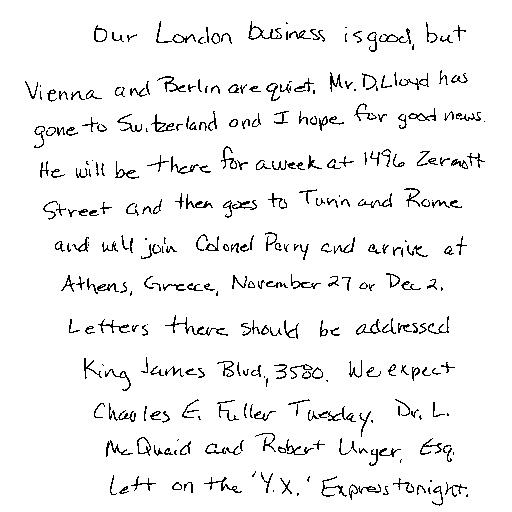 Our London business is good, but
Vienna and Berlin are quiet. Mr. D. Lloyd has
gone to Switzerland and I hope for good news.
He will be there for a week at 1496 Zermott
Street and then goes to Turin and Rome
and will join Colonel Parry and arrive at
Athens, Greece, November 27 or Dec 2.
Letters there should be addressed
King James Blvd, 3580. We expect
Charles E. Fuller Tuesday. Dr. L.
McQuaid and Robert Unger, Esq.
left on the 'Y.X.' Express tonight.